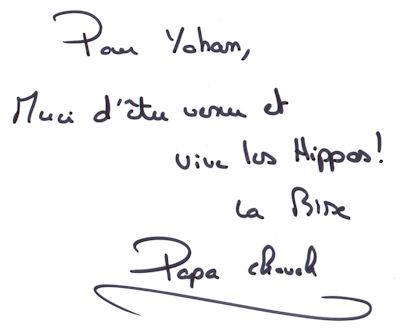 Pour Yohann,
Merci d'être venu et
vive les Hippos!
La Bise
Papa